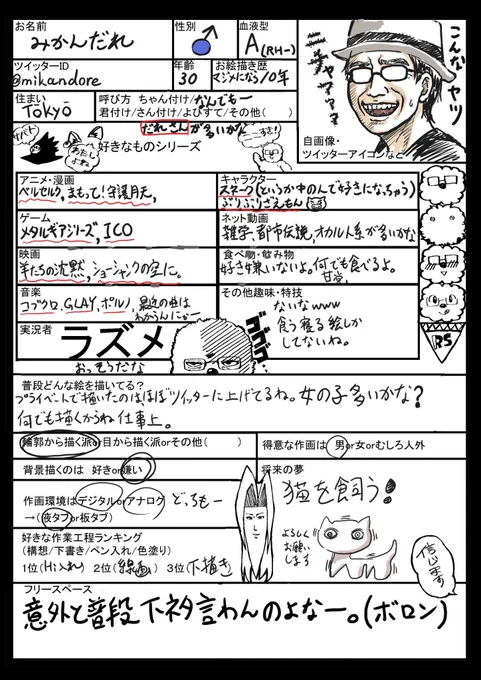 お名前
みかんだれ
性別
♂
血液型
A(RH-)
こんなヤツ
ツイッターID
@mikandore
年齢
30
お絵描き歴
マジメになら10年
住まい
Tokyo
呼び方 ちゃん付け/なんでもー
君付け/さん付け/よびすて/その他( )
だれさんが多いかな
自画像・
ツイッターアイコンなど
好きなものシリーズ
アニメ・漫画
ベルセルク,まもって!守護月天,
キャラクター
スネーク(というか中の人で好きになっちゃう)
ぶりぶりざえもん
ゲーム
メタルギアシリーズ,ICO
ネット動画
雑学,都市伝説,オカルト系が多いかな
映画
羊たちの沈黙,ショーシャンクの空に。
食べ物・飲み物
好き嫌いないよ。何でも食べるよ。
音楽
コブクロ.GLAY.ポルノ,最近の曲は
わからんにゃー
その他趣味・特技
ないなwww
食う寝る絵しか
してないね。
実況者
ラズメ
おっそうだな
ゴゴゴ
RS
普段どんな絵を描いてる?
プライベートで描いたのはほぼツイッターに上げてるね。女の子多いかな?
何でも描くからね仕事上。
輪郭から描く派or目から描く派orその他( )
得意な作画は 男or女orむしろ人外
背景描くのは 好きor嫌い
将来の夢
猫を飼う!
作画環境はデジタルorアナログ どっちもー
→(液タブor板タブ)
よろしく
お願い
します
好きな作業工程ランキング
(構想/下書き/ペン入れ/色塗り)
1位(Hi入れ) 2位(線画) 3位(下描き)
信じます
フリースペース
意外と普段下ネタ言わんのよなー。(ボロン)